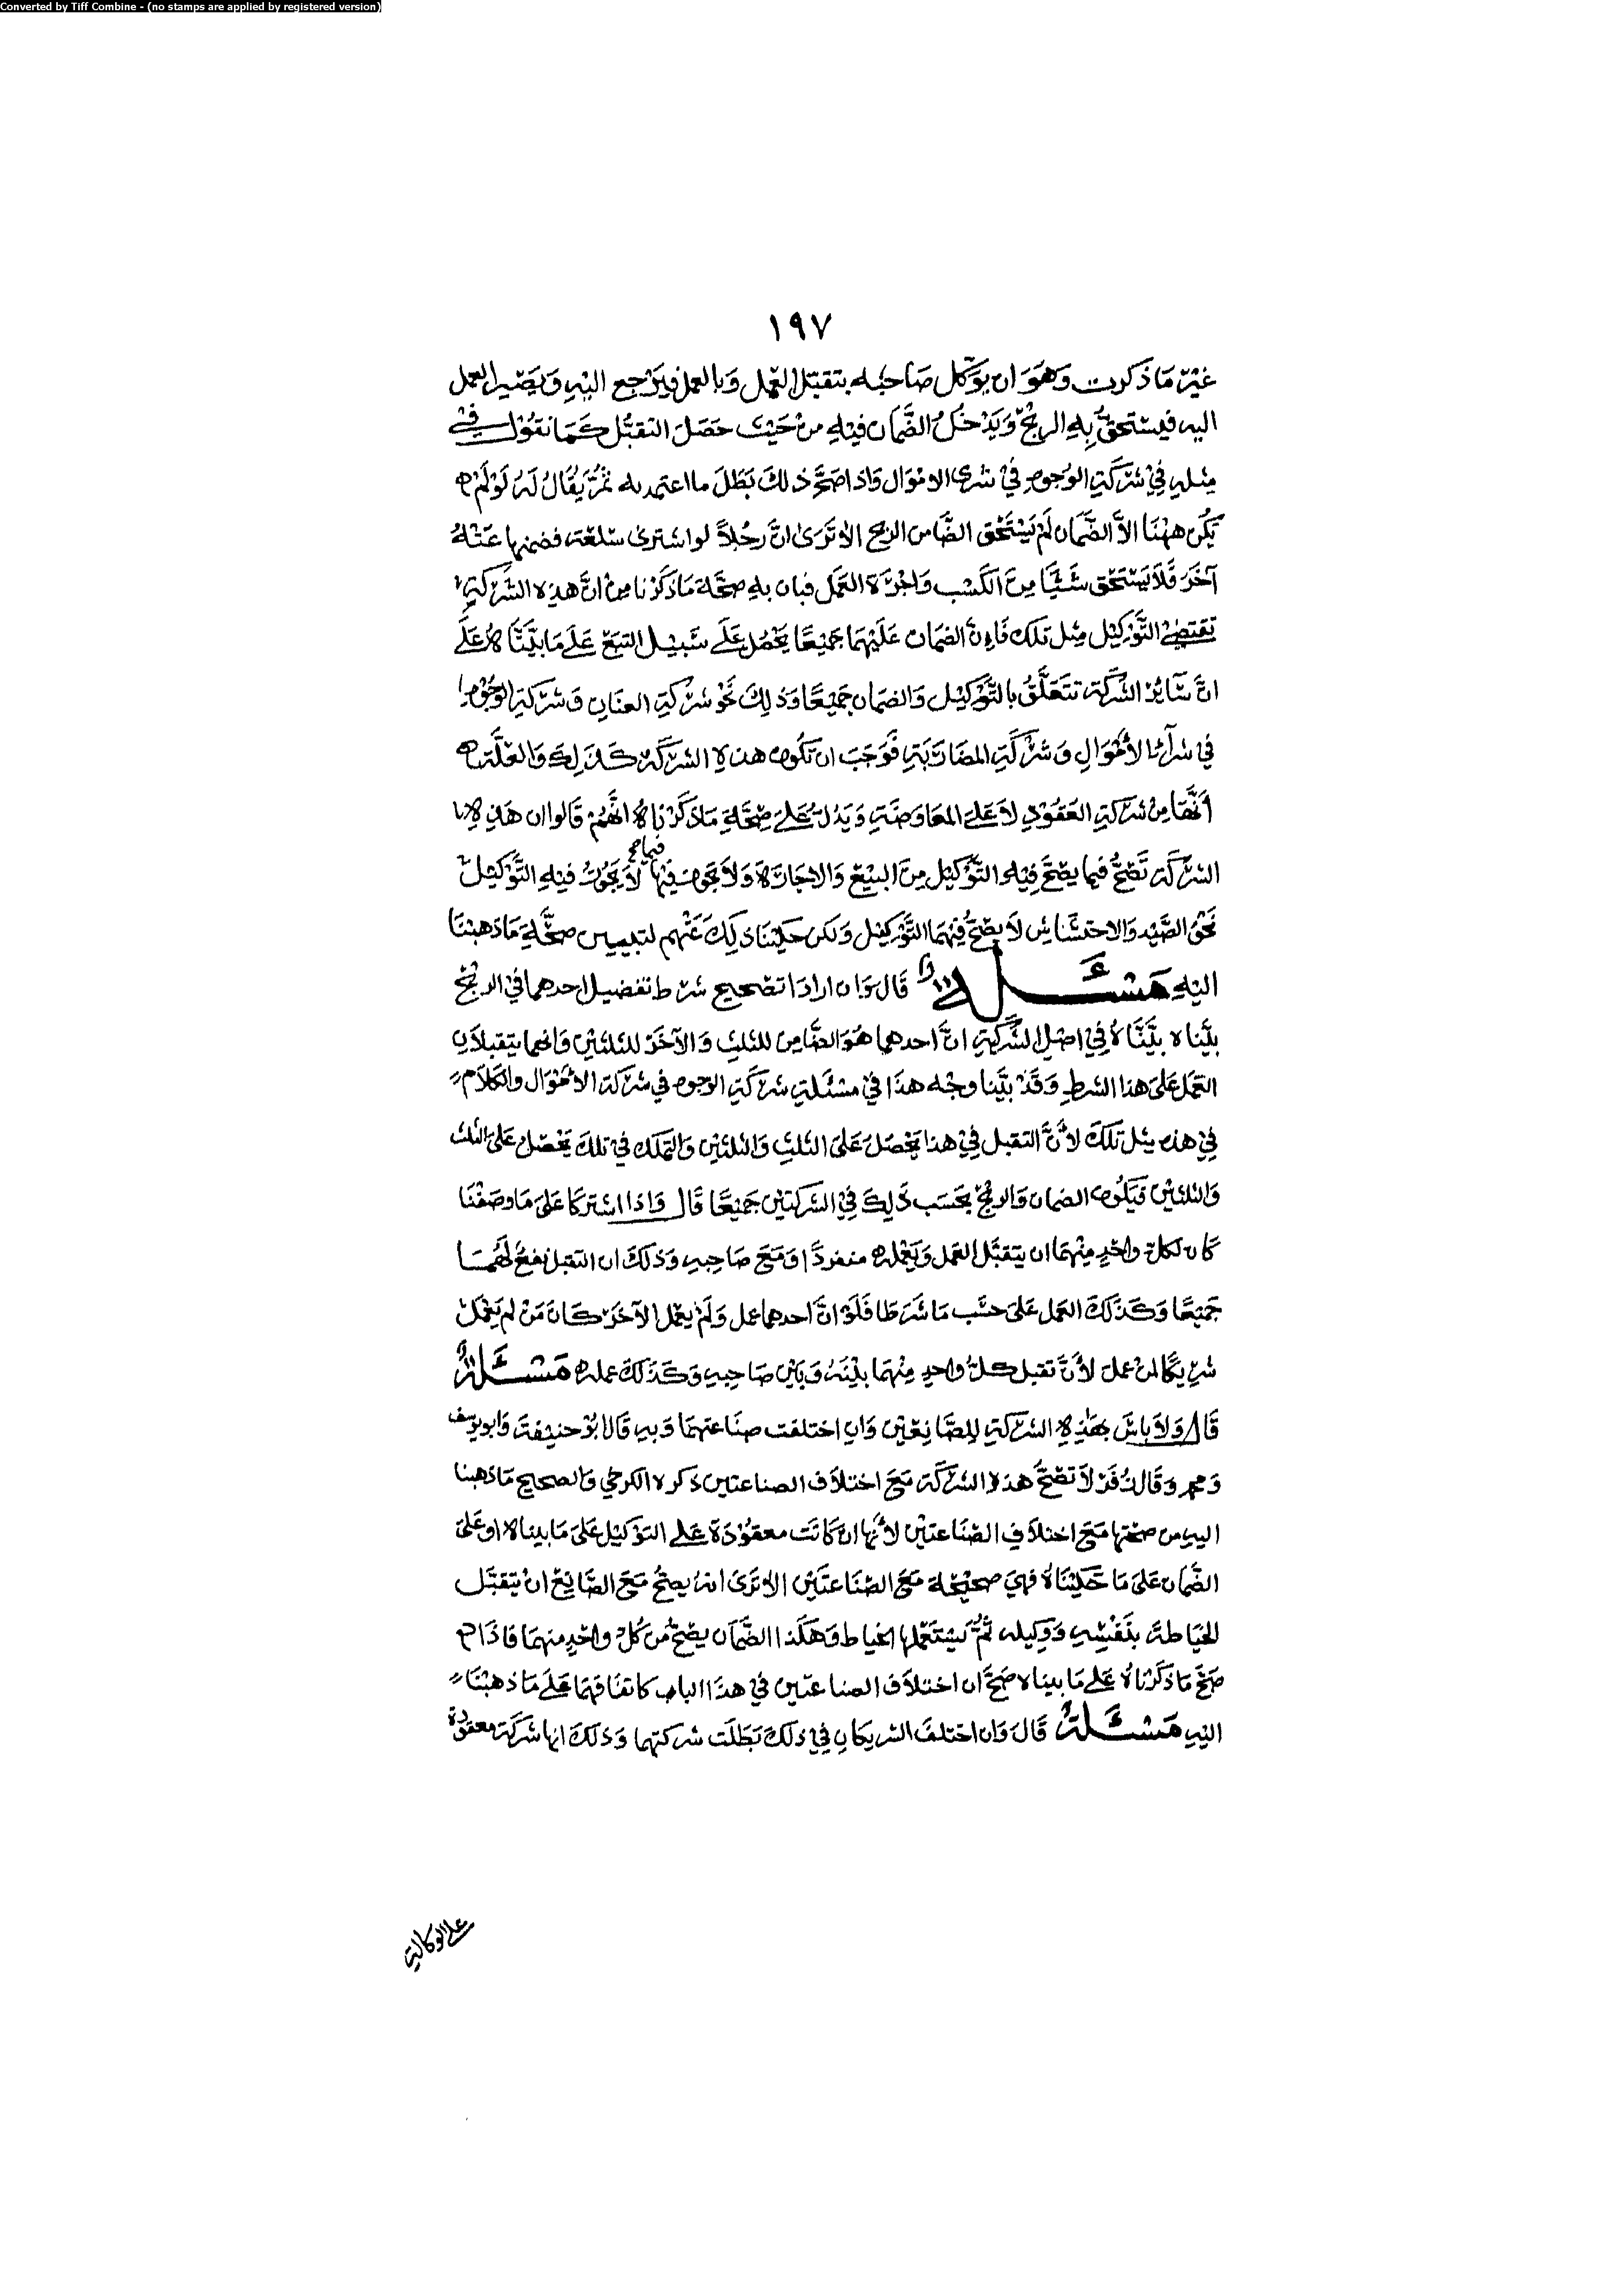 Converted by Tiff Combine - (no stamps are applied by registered version)
١٩٧
غير ما ذكرت وهو ان يوكل صاحبه بتقبل العمل وبالعمل فيرجع اليه ويصير العمل
اليه فيستحق به الربح ويدخل الضمان فيه من حيث حصل التقبل كما نقول في
مثله في شركة الوجوه في شرى الاموال واذا صح ذلك بطل ما اعتمد به ثم يقال له لو لم
يكن ههنا الا الضمان لم يستحق الضامن الربح الا ترى ان رجلا لو اشترى سلعة فضمنها عنه
آخر فلا يستحق شيئا من الكسب واجرة العمل فبان به صحة ما ذكرنا من ان هذه الشركة
تقتضي التوكيل مثل تلك فاِن الضمان عليهما جميعا يحصل على سبيل التبع على ما بيناه على
ان سائر الشركة تتعلق بالتوكيل والضمان جميعا وذلك نحو شركة العنان وشركة الوجوه
في شرآء الاموال وشركة المضاربة فوجب ان تكون هذه الشركة كذلك والعلة
أنها من شركة العقود لا على المعاوضة ويدل على صحة ما ذكرناه انهم قالوا ان هذه
الشركة تصح فيما يصح فيه التوكيل من البيع والاجارة ولا يجوز فيما لا يجوز فيه التوكيل
نحو الصيد والاحتشاش لا يصح فيهما التوكيل ولكن حكينا ذلك عنهم لتبيين صحة ما ذهبنا
اليه مسئلة قال وان ارادا تصحيح شرط تفضيل احدهما في الربح
بيناه بيناه في اصل الشركة ان احدهما هو الضامن للثلث والآخر للثلثين وانهما يتقبلان
العمل على هذا الشرط وقد بينا وجه هذا في مسئلة شركة الوجوه في شركة الاموال والكلام
في هذه مثل تلك لأن التقبل في هذا يحصل على الثلث والثلثين والتملك في تلك يحصل على الثلث
والثلثين فيكون الضمان والربح بحسب ذلك في الشركتين جميعا قال واذا اشتركا على ما وصفنا
كان لكل واحد منهما ان يتقبل العمل ويعمله منفردا او مع صاحبه وذلك ان التقبل يقع لهما
جميعا وكذلك العمل على حسب ما شرطا فلو ان احدهما عمل ولم يعمل الآخر كان من لم يعمل
شريكا لمن عمل لأن تقبل كل واحد منهما بينه وبين صاحبه وكذلك عمله مسئلة
قال ولا باس بهذه الشركة للصانعين وان اختلفت صناعتهما وبه قال ابو حنيفة وابو يوسف
ومحمد وقال زفر لا تصح هذه الشركة مع اختلاف الصناعتين ذكره الكرخي والصحيح ما ذهبنا
اليه من صحتها مع اختلاف الصناعتين لأنها ان كانت معقودة على التوكيل على ما بيناه او على
الضمان على ما حكيناه فهي صحيحة مع الصناعتين الا ترى انه يصح مع الصانع ان يتقبل
الخياطة بنفسه ووكيله ثم يستعملها الخياط وهكذا الضمان يصح من كل واحد منهما فاذا
صح ما ذكرناه على ما بيناه صح ان اختلاف الصناعتين في هذا الباب كاتفاقهما على ما ذهبنا
اليه مسئلة قال وان اختلف الشريكان في ذلك بطلت شركتهما وذلك انها شركة معقودة
على الوكالة